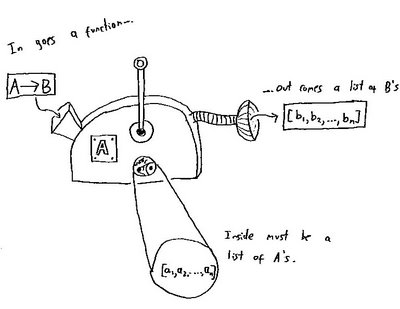 In goes a function...
A→B
...out comes a list of B's
[b₁,b₂,...,bₙ]
A
Inside must be a
list of A's.
[a₁,a₂,...,aₙ]